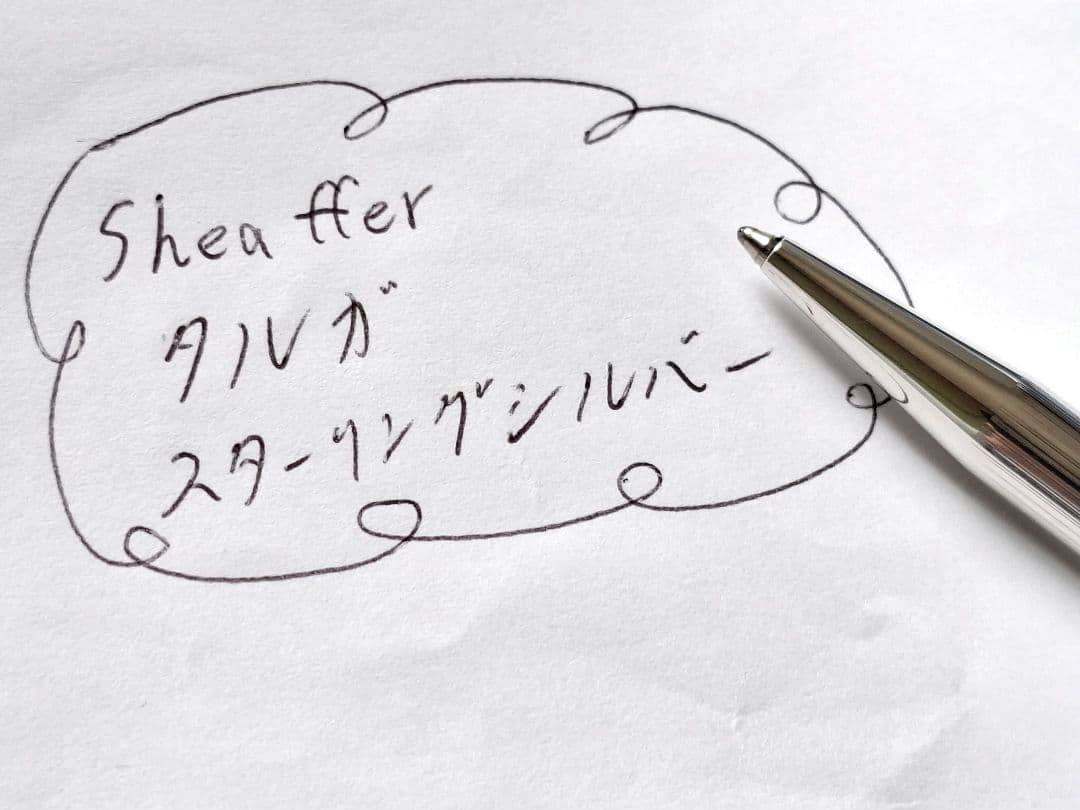 Sheaffer
タルガ
スターリングシルバー